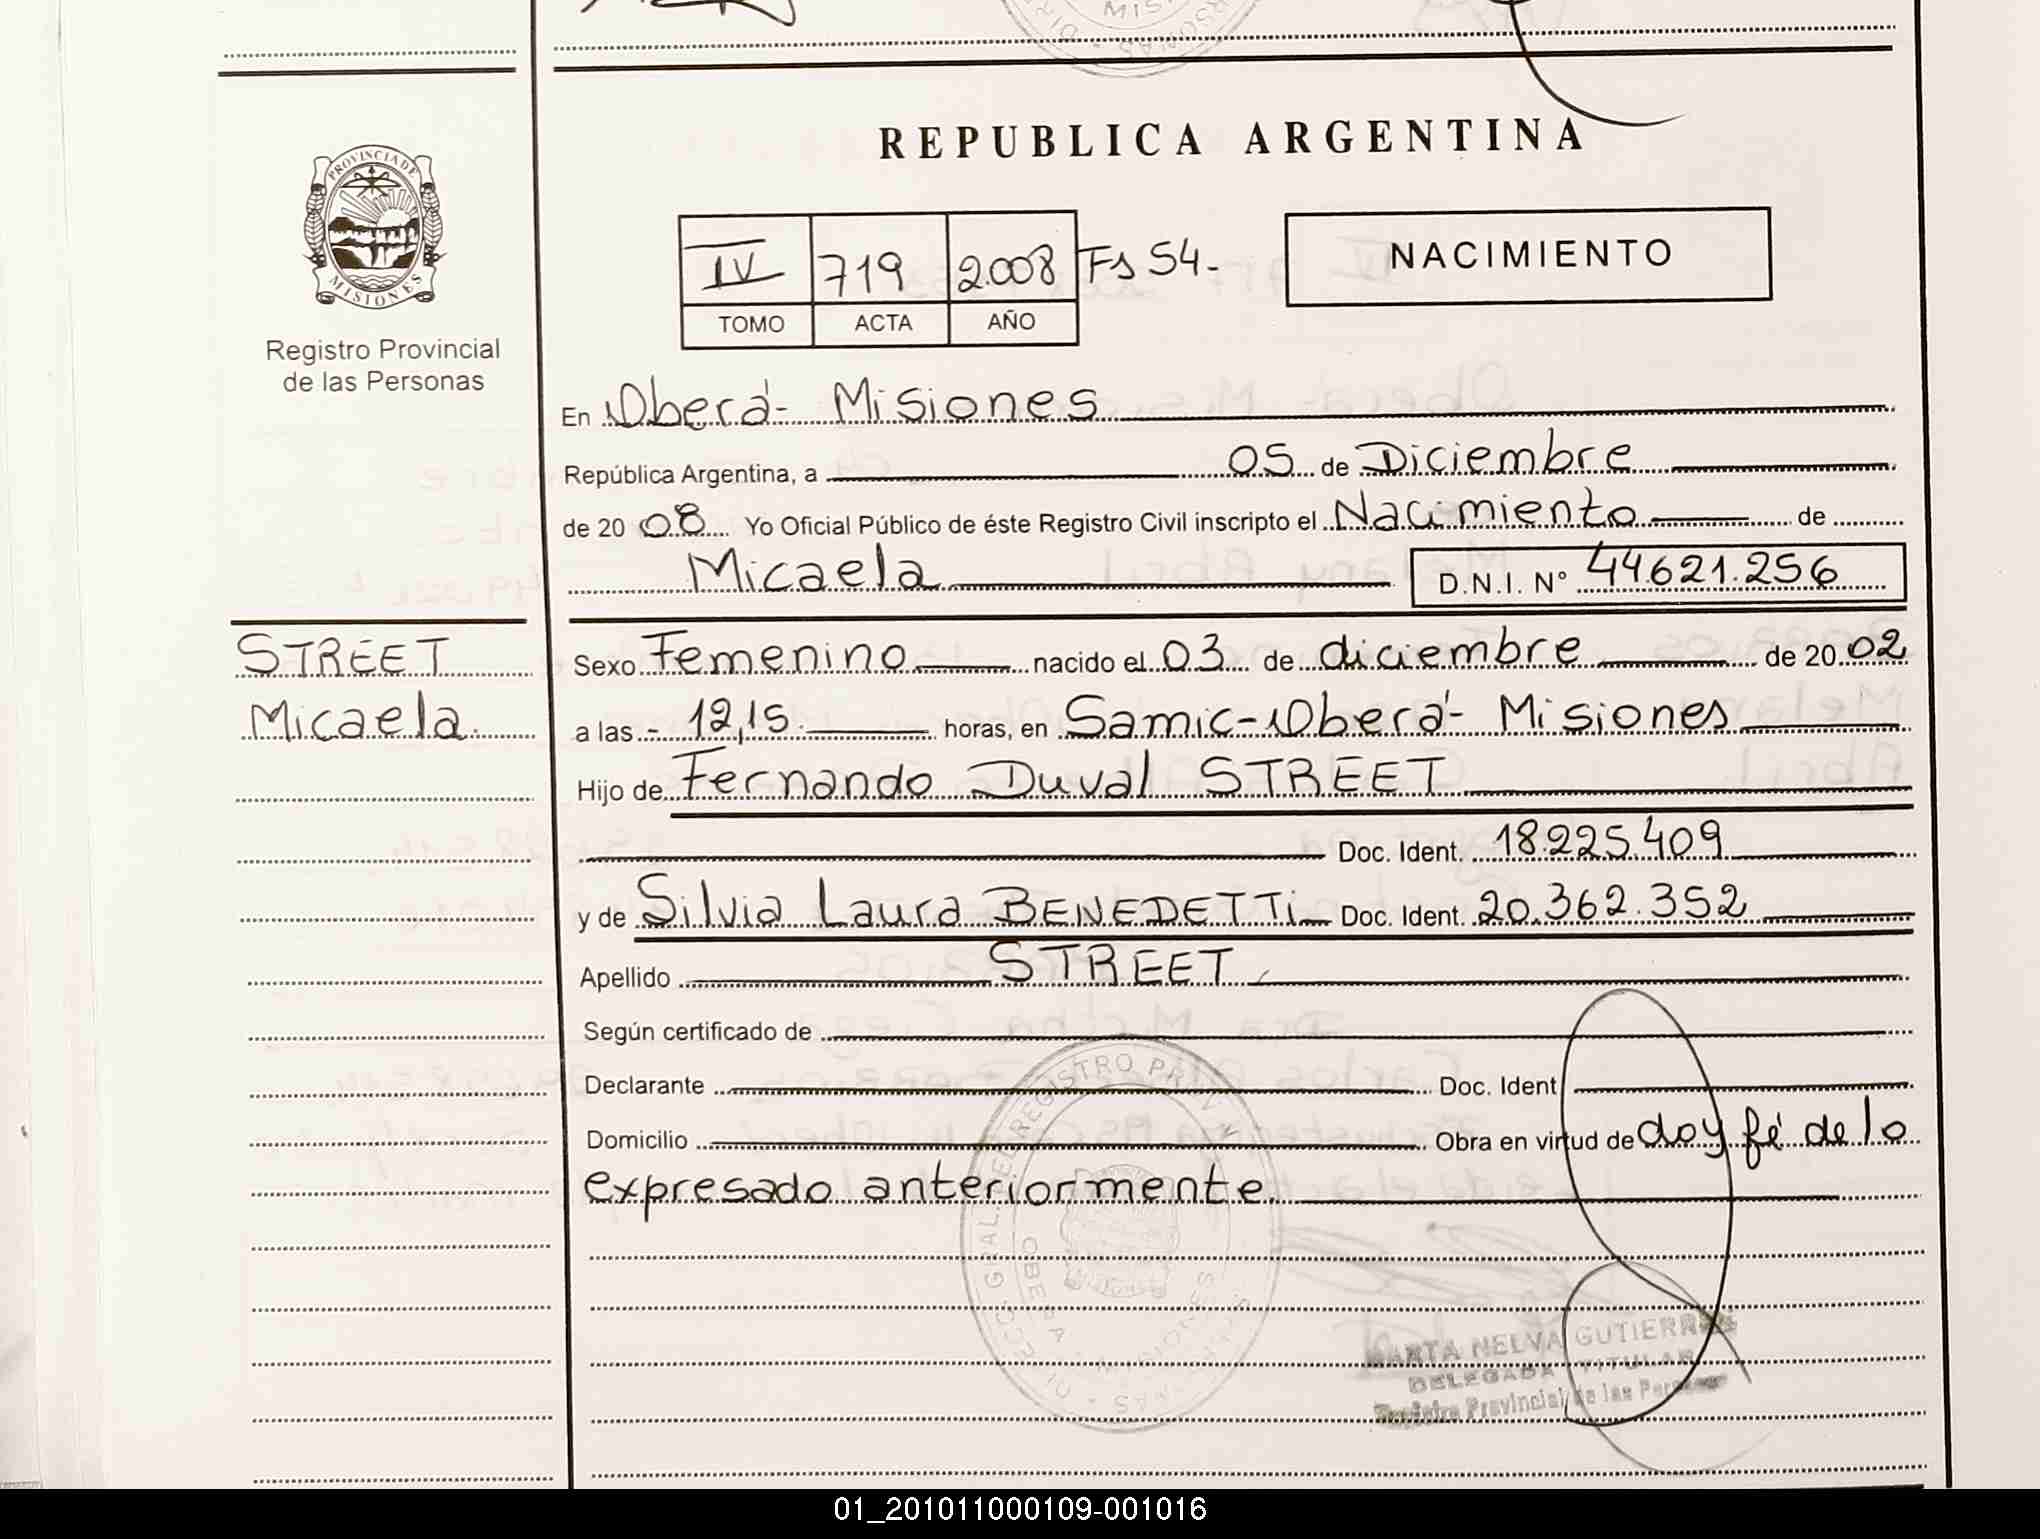 MIS
REPUBLICA ARGENTINA
PROVINCIA DE
MISIONES
Registro Provincial
de las Personas
IV 719 2.008 Fs 54.-
TOMO ACTA AÑO
NACIMIENTO
En Oberá - Misiones
República Argentina, a 05 de Diciembre
de 20 08 Yo Oficial Público de éste Registro Civil inscripto el Nacimiento de
Micaela D.N.I. Nº 44.621.256
STREET
Micaela
Sexo Femenino nacido el 03 de diciembre de 20 02
a las - 12,15 horas, en Samic - Oberá - Misiones
Hijo de Fernando Duval STREET
Doc. Ident. 18.225.409
y de Silvia Laura BENEDETTi Doc. Ident. 20.362.352
Apellido STREET
Según certificado de
Declarante Doc. Ident
Domicilio Obra en virtud de doy fé de lo
expresado anteriormente
OBERA MISIONES
MARTA NELVA GUTIERREZ
DELEGADA TITULAR
Registro Provincial de las Personas
01_201011000109-001016